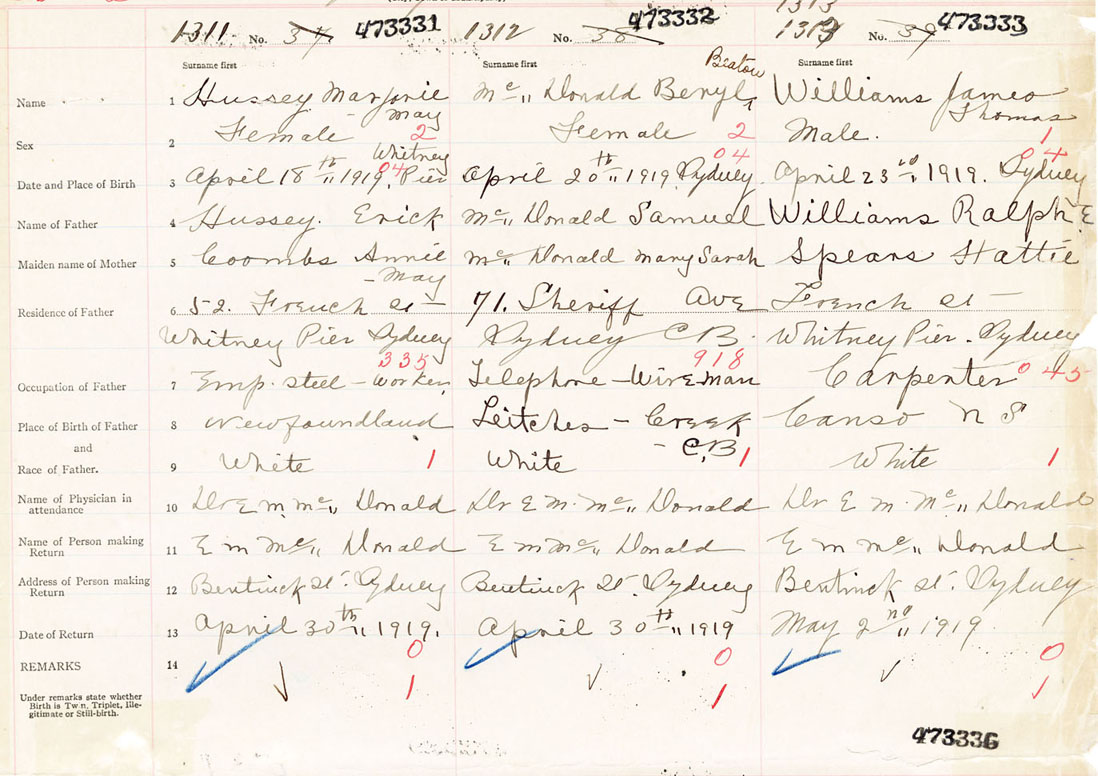 1311 No. 37 473331 1312 No. 38 473332 1313 No. 39 473333
1313
Surname first Surname first Surname first
Name 1 Hussey Marjorie May Mc,, Donald Beryl Beaton Williams James Thomas
Sex 2 Female 2 Female 2 Male. 1
Date and Place of Birth 3 April 18th,, 1919. Whitney Pier 04 April 20th,, 1919. Sydney 04 April 23rd,, 1919. Sydney 04
Name of Father 4 Hussey. Erick Mc,, Donald Samuel Williams Ralph E
Maiden name of Mother 5 Coombs Annie - May Mc,, Donald Mary Sarah Spears Hattie
Residence of Father 6 52. French St - 71. Sheriff Ave French St -
Whitney Pier Sydney Sydney C B. Whitney Pier. Sydney
335 918 045
Occupation of Father 7 Emp. Steel - Worker Telephone - Wireman Carpenter
Place of Birth of Father 8 Newfoundland Leitches - Creek - C.B Canso N S
and
Race of Father. 9 White 1 White 1 White 1
Name of Physician in attendance 10 Dr E M. Mc,, Donald Dr E M. Mc,, Donald Dr E M. Mc,, Donald
Name of Person making Return 11 E M Mc,, Donald E M Mc,, Donald E M Mc,, Donald
Address of Person making Return 12 Bentinck St. Sydney Bentinck St. Sydney Bentinck St. Sydney
Date of Return 13 April 30th,, 1919. April 30th,, 1919 May 2nd,, 1919.
REMARKS 14 0 0 0
Under remarks state whether Birth is Twin, Triplet, Ille-
gitimate or Still-birth.
1 1 1
473336